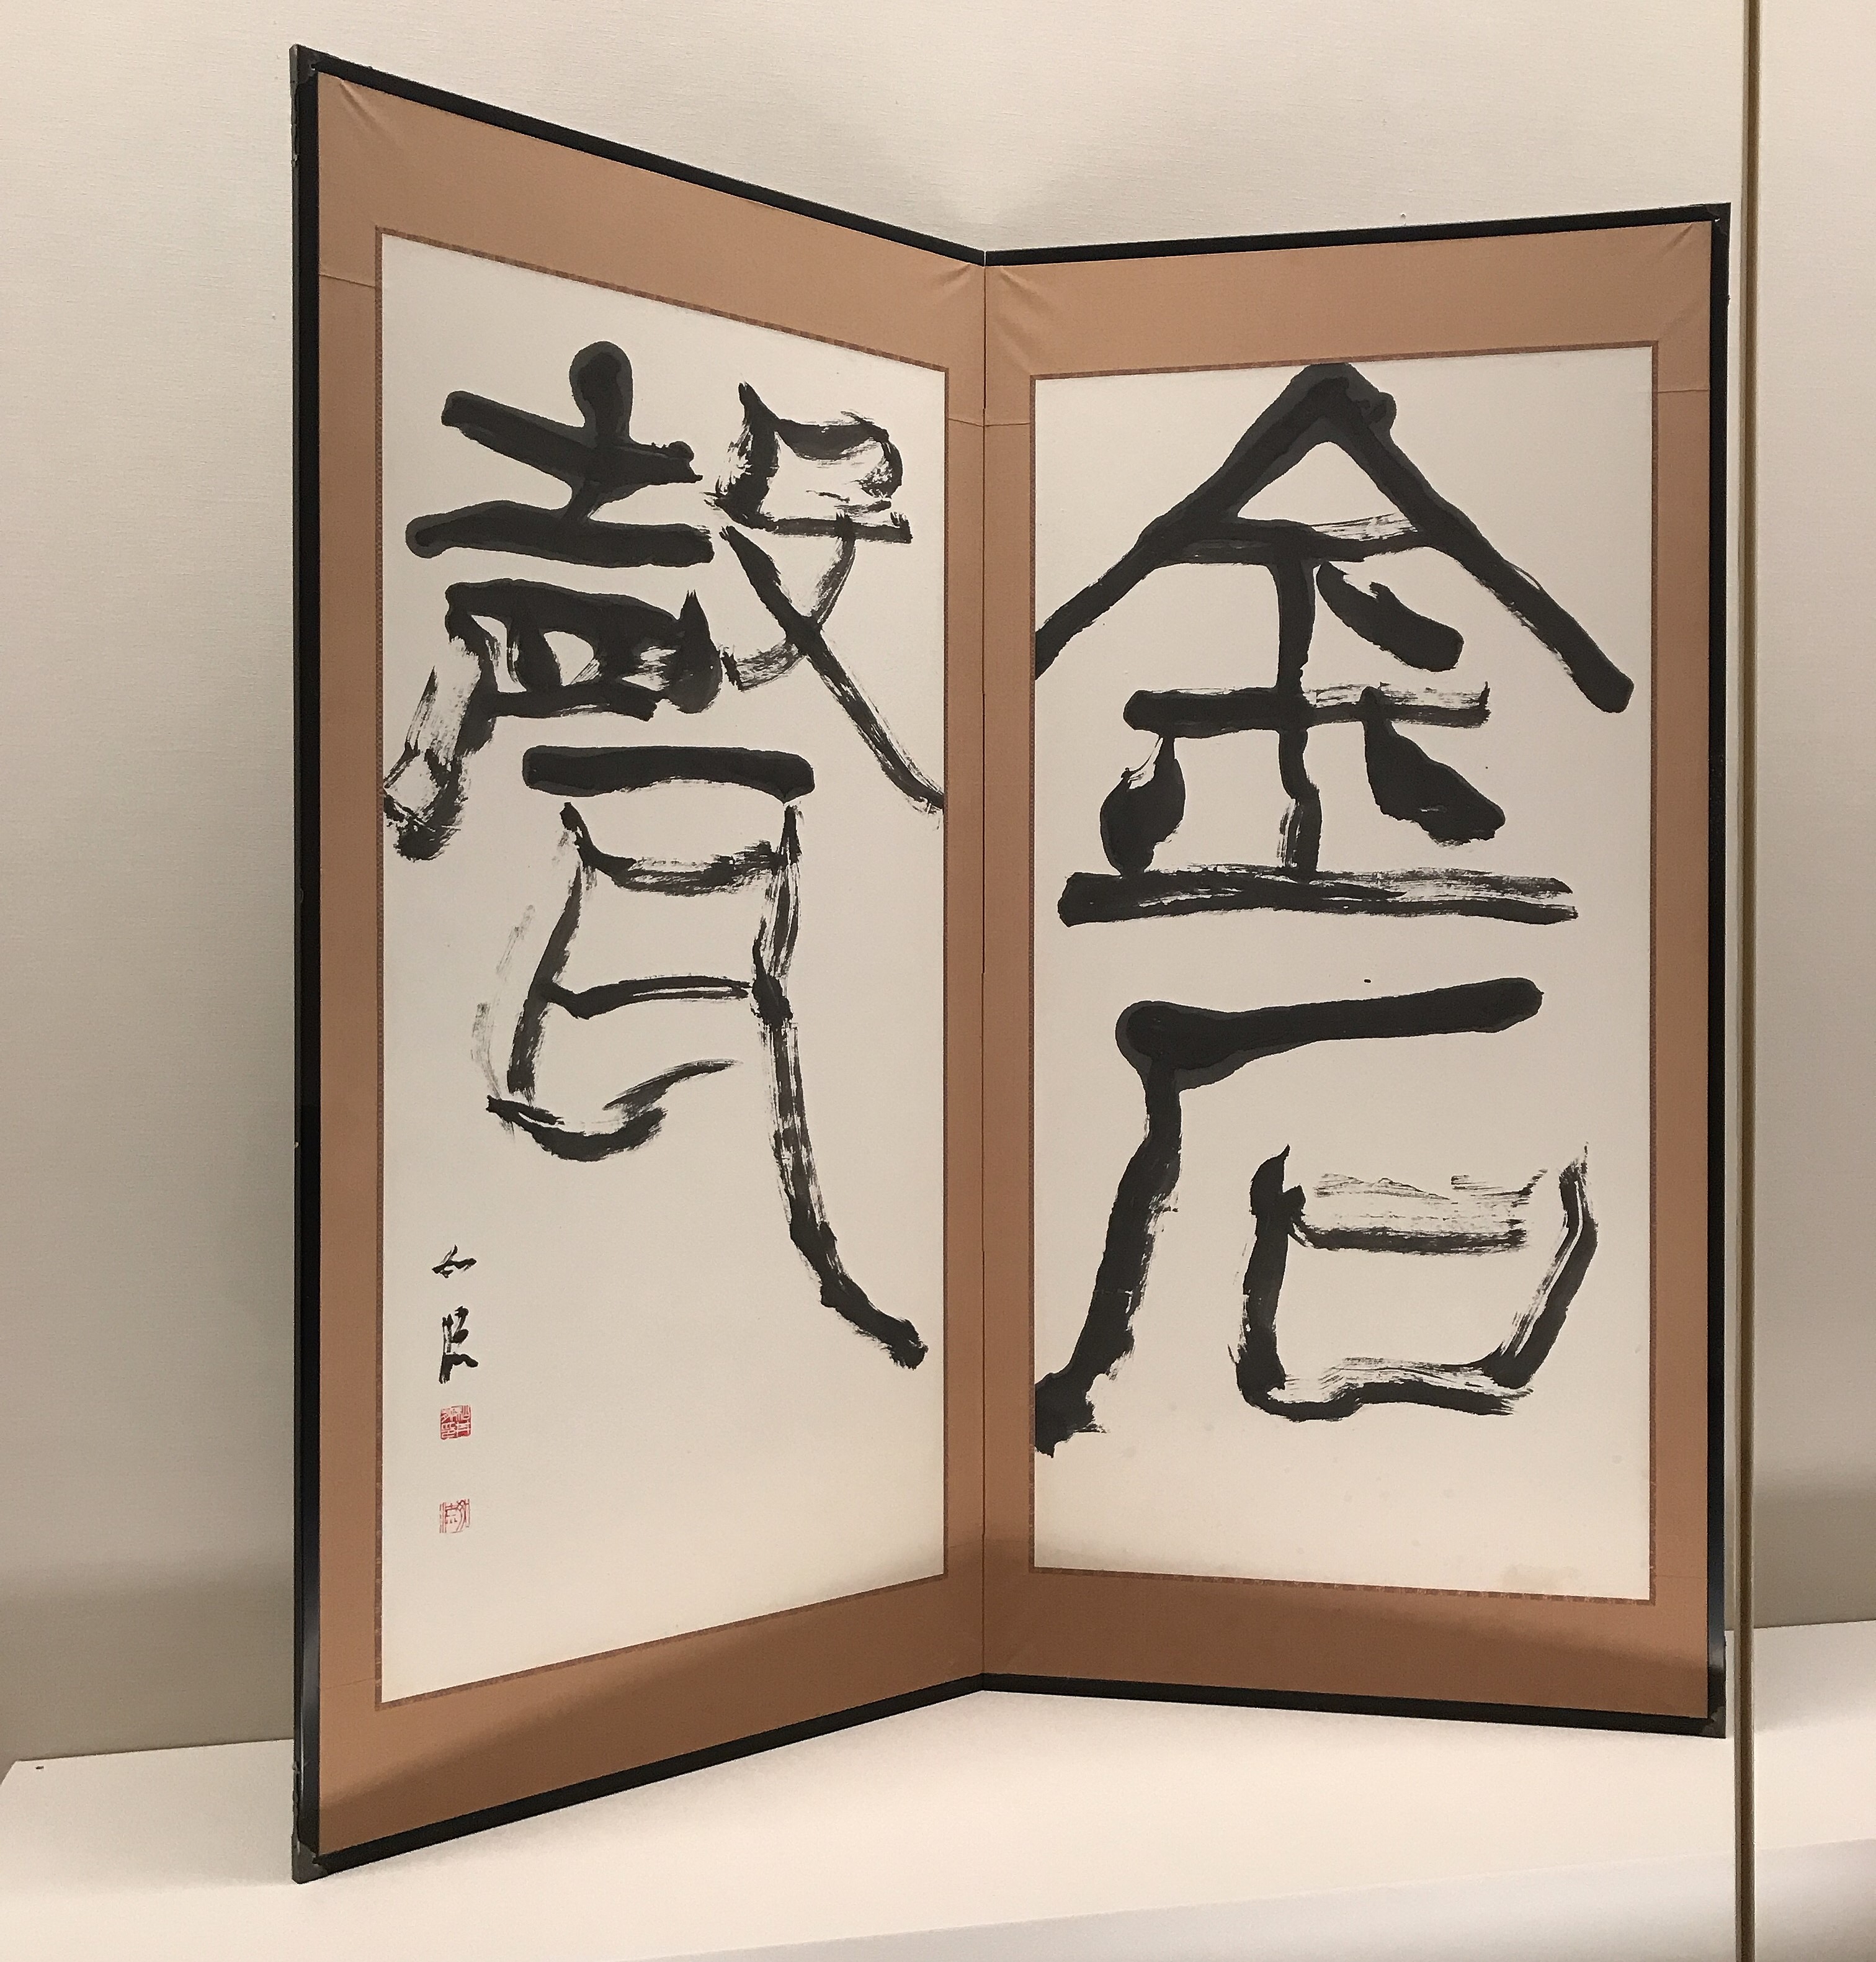 金石
聲
如流